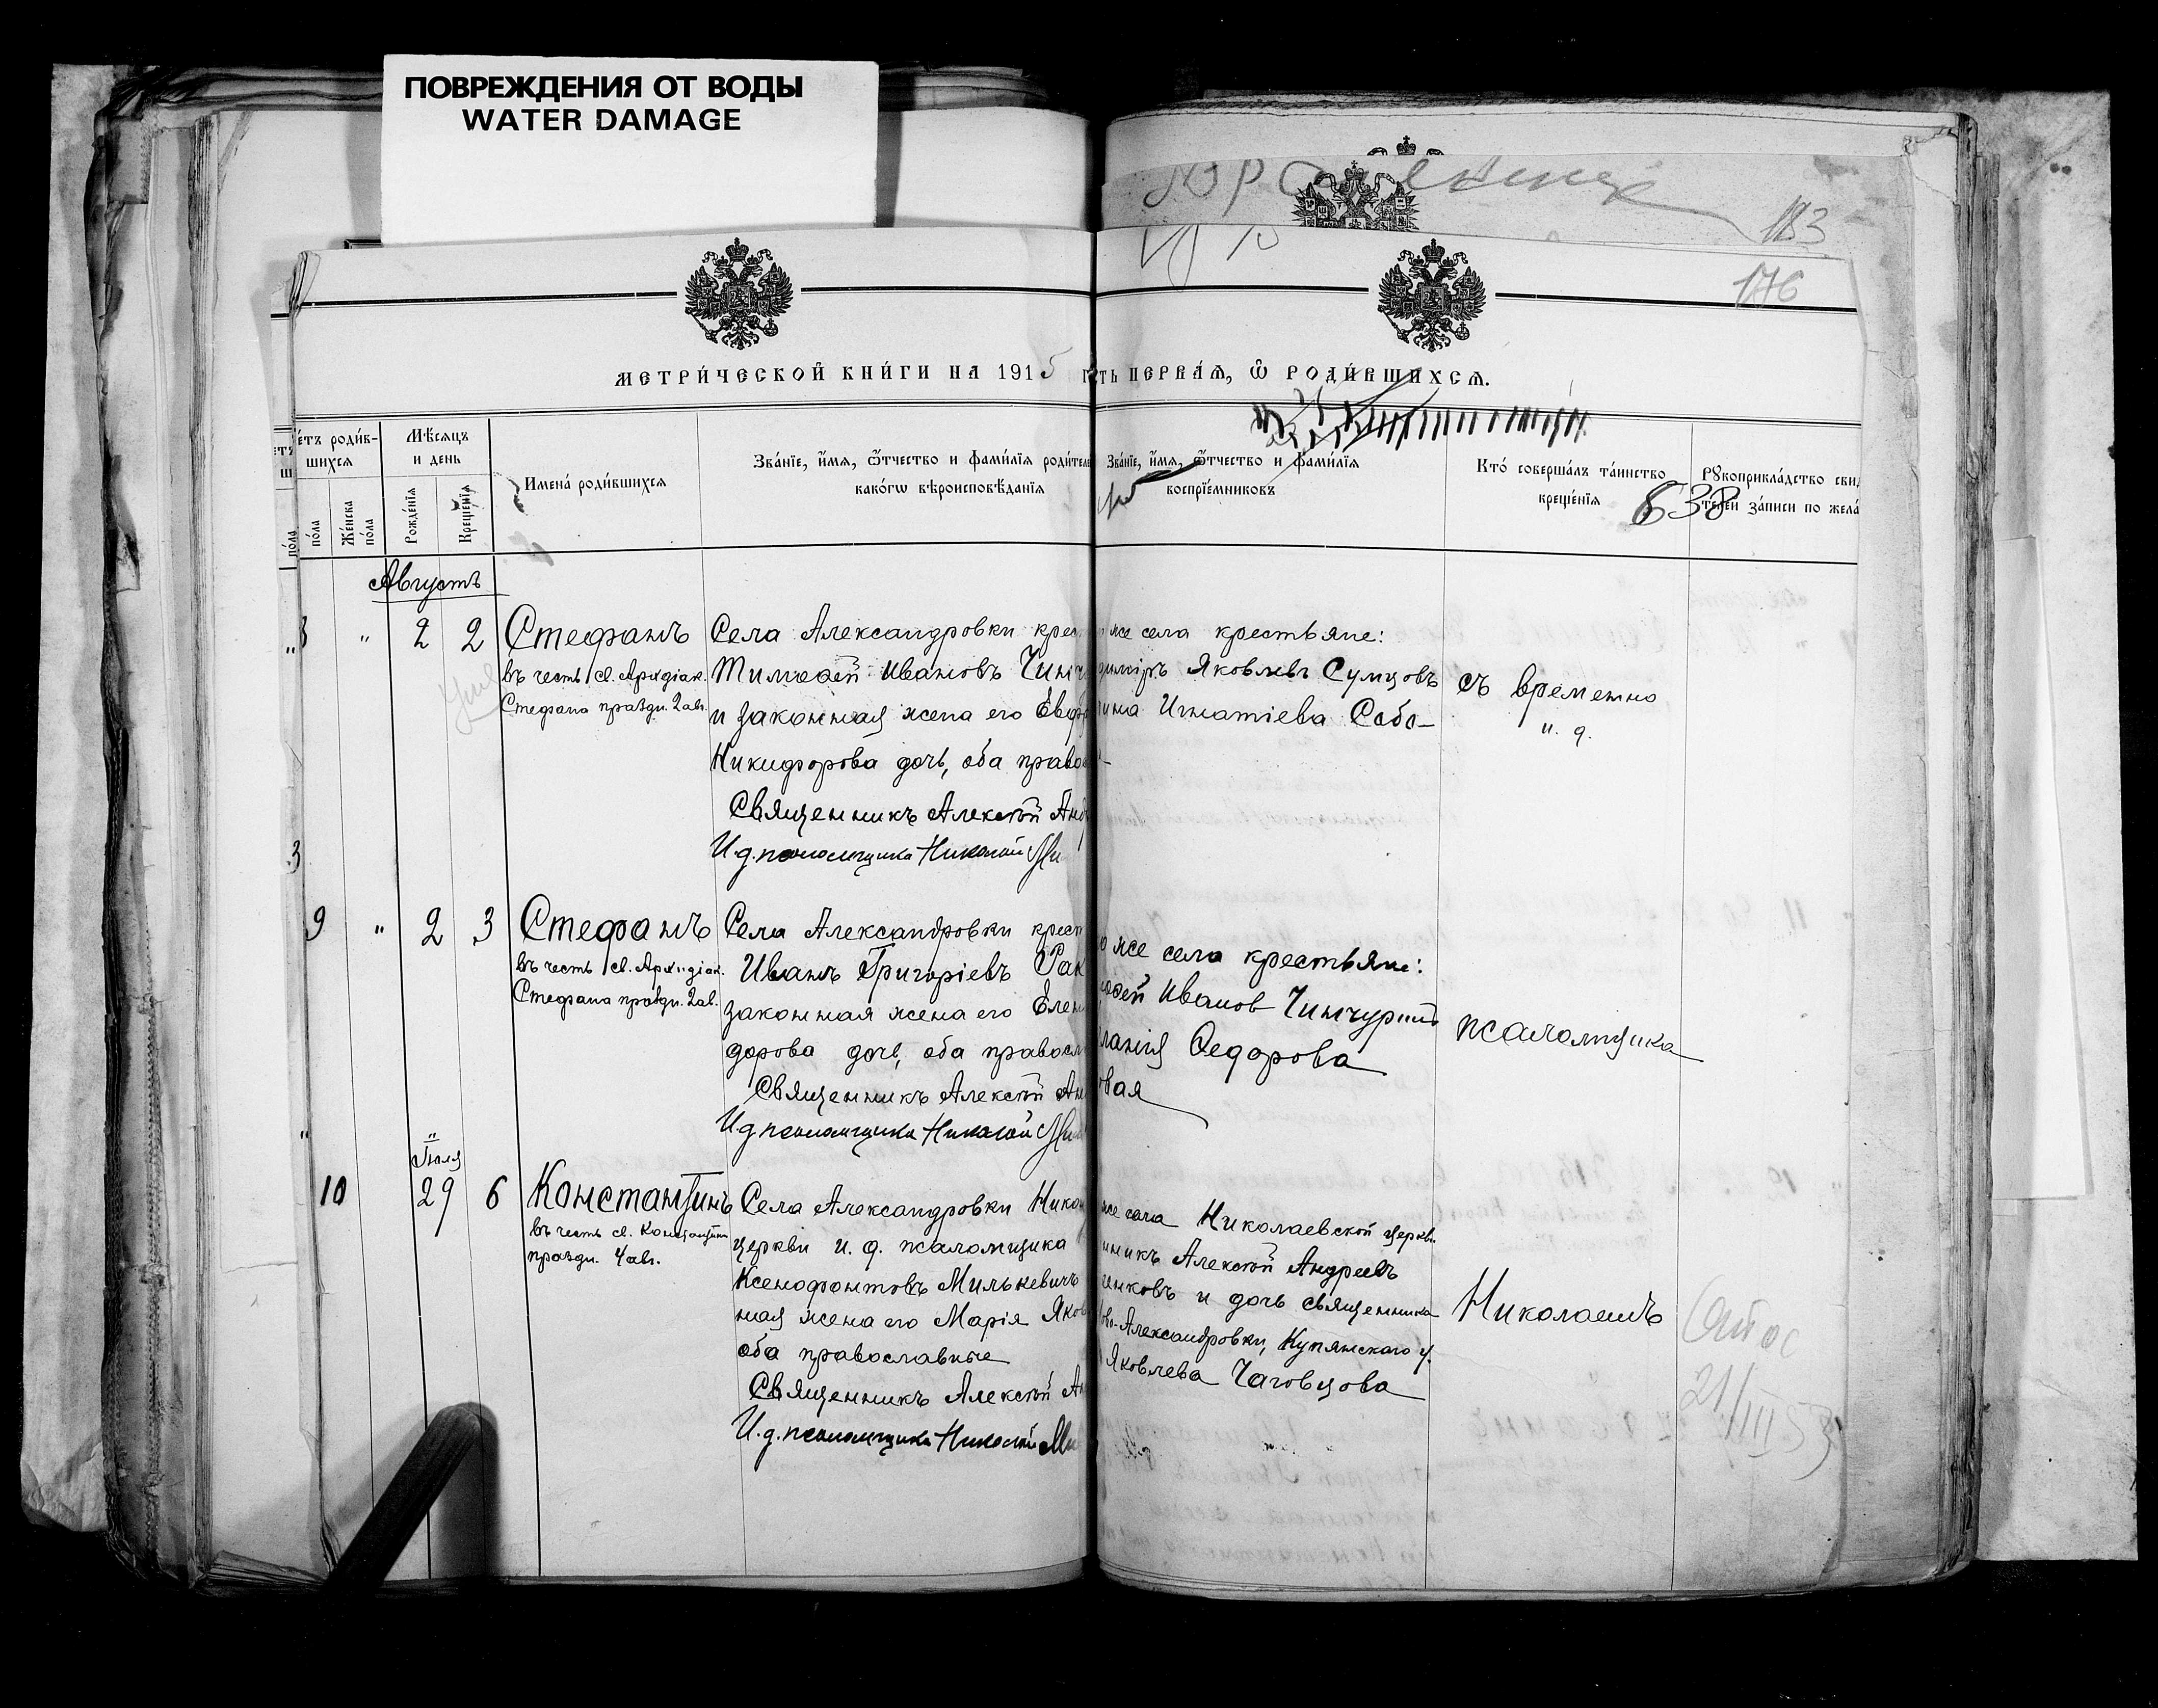 ПОВРЕЖДЕНИЯ ОТ ВОДЫ
WATER DAMAGE
183
176
МЕТРИ́ЧЕСКОЙ КНИ́ГИ НА 1915
ть ПЕРВА́Ѧ, Ѽ РОДИ́ВШИХСѦ.
е́тъ роди́в-
шихсѧ
Мѣсѧцъ
и день
по́ла
Же́нска
по́ла
Рожде́нїѧ
Креще́нїѧ
Имена́ роди́вшихсѧ
Зва́нїе, и҆́мѧ, ѻ҆́тчество и фами́лїѧ родителе
како́гѡ вѣроисповѣ́данїѧ
Зва́нїе, и҆́мѧ, ѻ҆́тчество и фами́лїѧ
воспрїе́мниковъ
Кто́ соверша́лъ та́инство
креще́нїѧ
638
Рꙋкоприкла́дство сви
телей за́писи по жела
Августъ
" 2 2
Стефанъ
въ честь св. Архидіак.
Стефана праздн. 2 авг.
Села Александровки крес
Тимоѳей Ивановъ Чинч
и законная жена его Евфр
Никифорова дочь, оба право
Священникъ Алексѣй Анд
И.д. псаломщика Николай Ми
же села крестьяне:
димиръ Яковлевъ Сумцовъ
Игнатіева Собо-
съ временно
и. д.
3
9 " 2 3
Стефанъ
въ честь св. Архидіак.
Стефана праздн. 2 ав.
Села Александровки крест
Иванъ Григоріевъ Рак
законная жена его Елен
дорова дочь, оба правосл
Священникъ Алексѣй Ан
И д псаломщика Николай Ми
же села крестьяне:
оѳей Иванов Чинчуринъ
ланія Ѳедорова
овая
псаломщика
Іюля
10 29 6
Константинъ
въ честь св. Константина
праздн. 4 авг.
Села Александровки Никол
церкви и. д. псаломщика
Ксенофонтовъ Милькевичъ
ная жена его Марія Яков
оба православные
Священникъ Алексѣй Ан
И.д. псаломщика Николай Ми
же села Николаевской церкви
нникъ Алексѣй Андреевъ
енковъ и дочь священника
ово-Александровки, Купянскаго у.
Яковлева Чаговцова
Николаемъ
21/III 53